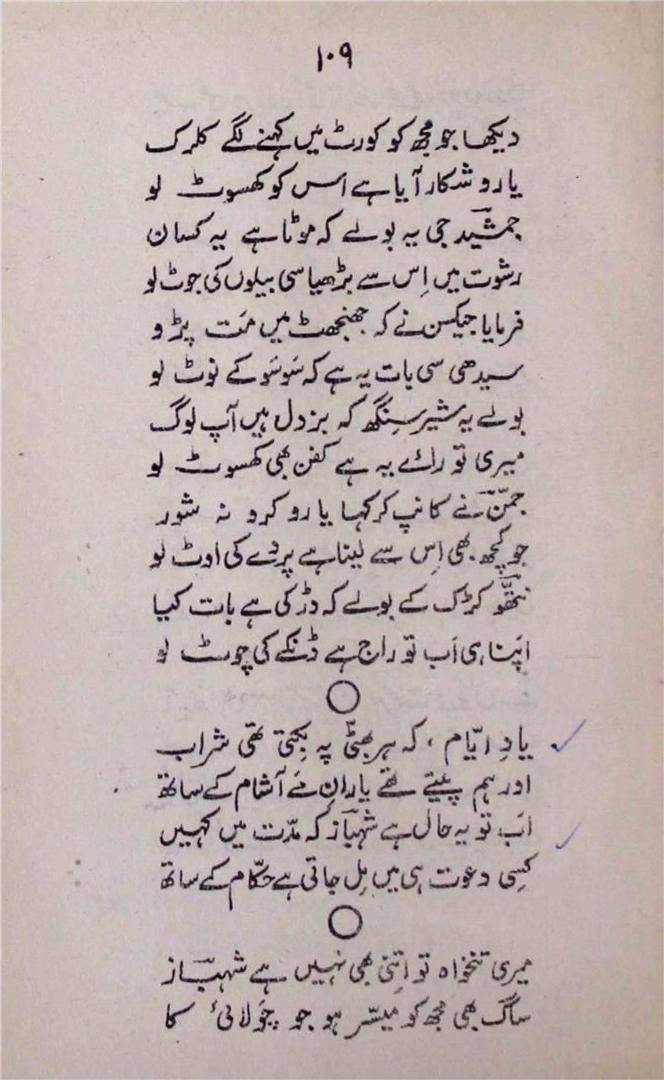 ۱۰۹
دیکھا جو مجھ کو کورٹ میں کہنے لگے کلرک
یارو شکار آیا ہے اس کو کھسوٹ لو
جمشید جی یہ بولے کہ موٹا ہے یہ کسان
رشوت میں اِس سے بڑھیا سی بیلوں کی جوٹ لو
فرمایا جیکسن نے کہ جھنجھٹ میں مَت پڑو
سیدھی سی بات یہ ہے کہ سَو سَو کے نوٹ لو
بولے یہ شیر سنگھ کہ بزدل ہیں آپ لوگ
میری تو رائے یہ ہے کفن بھی کھسوٹ لو
جمّن نے کانپ کر کہا یارو کرو نہ شور
جو کچھ بھی اِس سے لینا ہے پردے کی اوٹ لو
نتھّو کڑک کے بولے کہ ڈر کی ہے بات کیا
اَپنا ہی اَب تو راج ہے ڈنکے کی چوٹ لو
یادِ ایّام، کہ ہر بھٹّی پہ بِکتی تھی شراب
اور ہم پیتے تھے یارانِ مَے آشام کے ساتھ
اَب تو یہ حال ہے شہباز کہ مدّت میں کہیں
کِسی دعوت ہی میں مِل جاتی ہے حکّام کے ساتھ
میری تنخواہ تو اِتنی بھی نہیں ہے شہباز
ساگ بھی مجھ کو میسّر ہو جو چَولائی کا